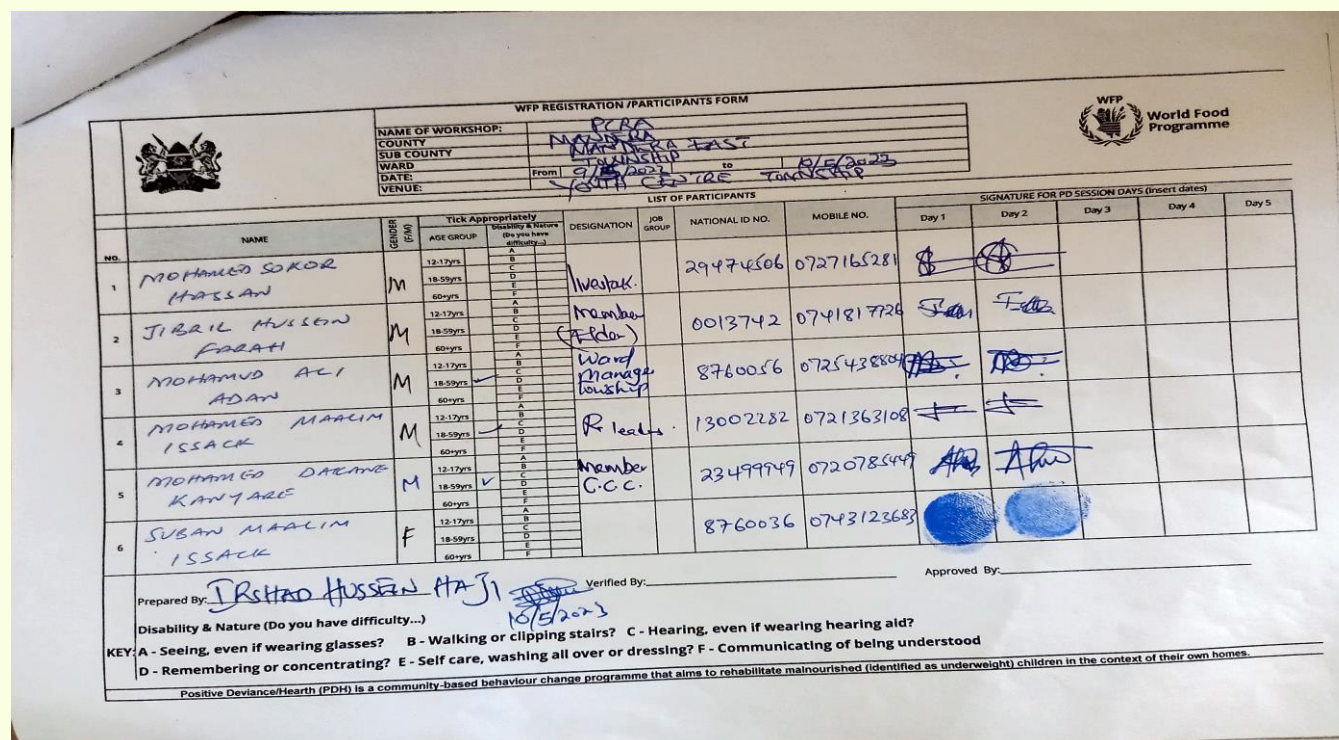 WFP REGISTRATION /PARTICIPANTS FORM
WFP
World Food
Programme
NAME OF WORKSHOP: PCRA
COUNTY MANDERA
SUB COUNTY MANDERA EAST
WARD TOWNSHIP
DATE: From 9/5/2023 to 10/5/2023
VENUE: YOUTH CENTRE TOWNSHIP
LIST OF PARTICIPANTS
SIGNATURE FOR PD SESSION DAYS (Insert dates)
NO. NAME GENDER (F/M) Tick Appropriately AGE GROUP Disability & Nature (Do you have difficulty...) DESIGNATION JOB GROUP NATIONAL ID NO. MOBILE NO. Day 1 Day 2 Day 3 Day 4 Day 5
1 MOHAMED SOKOR HASSAN M 12-17yrs 18-59yrs 60+yrs A B C D E F livestak. 29474506 0727165281
2 JIBRIL HUSSEIN FARAH M 12-17yrs 18-59yrs 60+yrs A B C D E F Member (Elder) 0013742 0741817726
3 MOHAMUD ALI ADAN M 12-17yrs 18-59yrs ✓ 60+yrs A B C D E F Ward Manage township 8760056 0725438804
4 MOHAMED MAALIM ISSACK M 12-17yrs 18-59yrs ✓ 60+yrs A B C D E F R. leader. 13002282 0721363108
5 MOHAMED DAKANE KANYARE M 12-17yrs 18-59yrs ✓ 60+yrs A B C D E F Member C.C.C. 23499949 0720785449
6 SUBAN MAALIM ISSACK F 12-17yrs 18-59yrs 60+yrs A B C D E F 8760036 0743123683
Prepared By: IRSHAD HUSSEIN HAJI Verified By: Approved By:
10/5/2023
Disability & Nature (Do you have difficulty...)
KEY: A - Seeing, even if wearing glasses? B - Walking or clipping stairs? C - Hearing, even if wearing hearing aid?
D - Remembering or concentrating? E - Self care, washing all over or dressing? F - Communicating of being understood
Positive Deviance/Hearth (PDH) is a community-based behaviour change programme that aims to rehabilitate malnourished (identified as underweight) children in the context of their own homes.